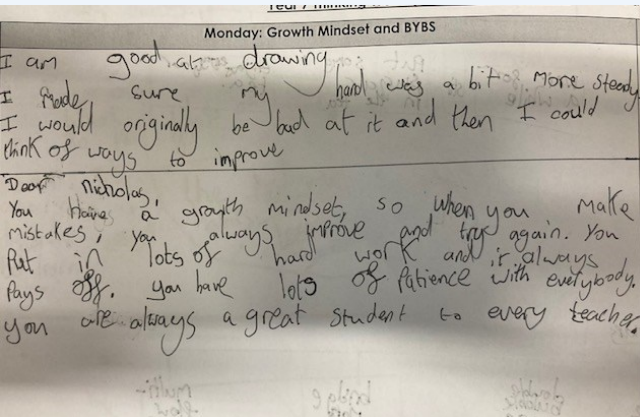 Year 7 Thinking
Monday: Growth Mindset and BYBS
I am good at drawing
I made sure my hand was a bit more steady
I would originally be bad at it and then I could
think of ways to improve
Dear Nicholas,
You have a growth mindset, so when you make
mistakes, you always improve and try again. You
Put in lots of hard work and it always
Pays off. you have lots of Patience with everybody.
you are always a great student to every teacher.